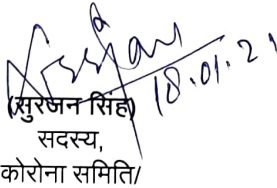 18.01.21
(सुरजन सिंह)
सदस्य,
कोरोना समिति/